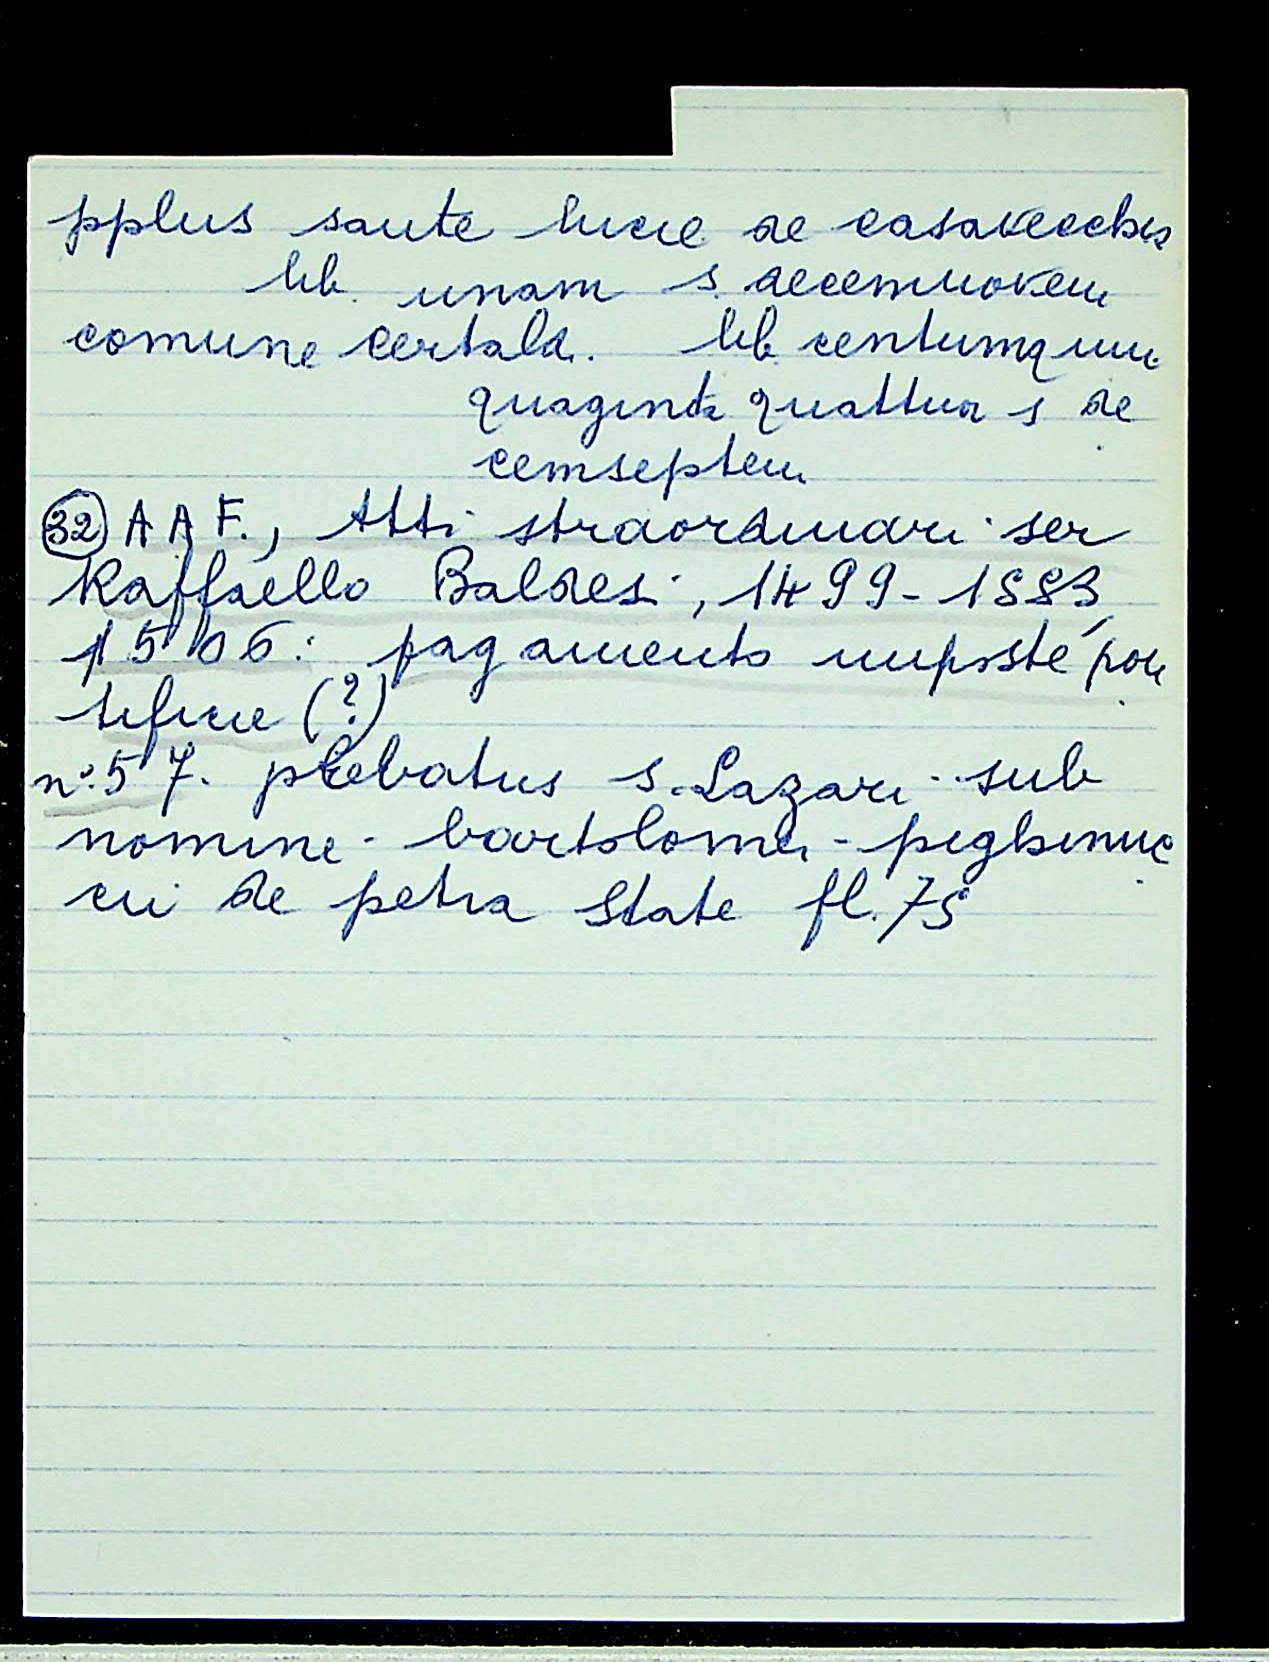 pplus sante lucie de casavecchia
lib. unam s. decemnovem
comune certaldi. lib centumquin
quaginta quattuor s de
cemseptem
32 A A F., Atti straordinari ser
Raffaello Baldesi, 1499-1553,
1506: pagamento imposte pon
tificie (?)
n. 57. plebatus s. Lazari sub
nomine - bartolomei - pighinuc
cii de petra State fl. 75